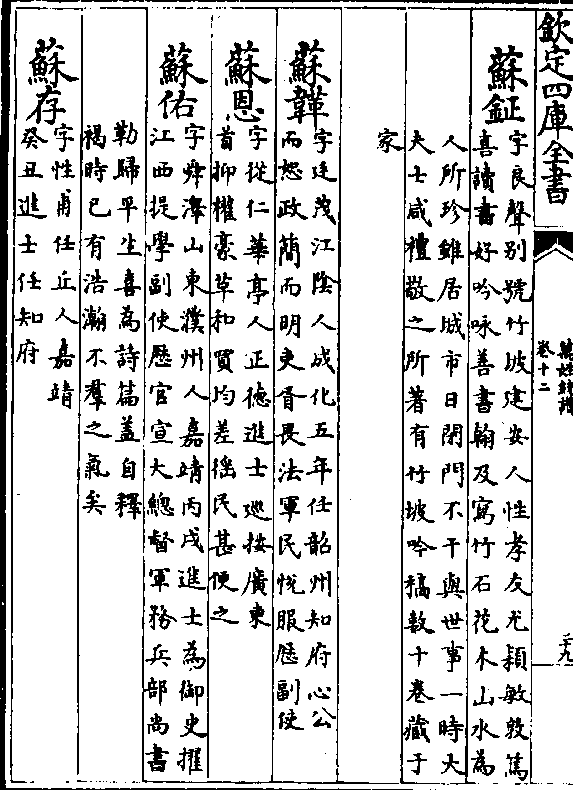 欽定四庫全書
萬姓統譜
卷十二
二十九
蘇鉦
字良聲别號竹坡建安人性孝友尤頴敏敦篤
喜讀書好吟咏善書翰及寫竹石花木山水為
人所珍雖居城市日閉門不干與世事一時大
夫士咸禮敬之所著有竹坡吟稿數十卷藏于
家
蘇韡
字廷茂江陰人成化五年任韶州知府心公
而恕政簡而明吏胥畏法軍民悅服歴副使
蘇恩
字從仁華亭人正德進士廵按廣東
首抑權豪草和買均差徭民甚便之
蘇佑
字舜澤山東濮州人嘉靖丙戌進士為御史擢
江西提學副使歴官宣大總督軍務兵部尚書
勒歸平生喜為詩篇盖自釋
褐時已有浩瀚不羣之氣矣
蘇存
字性甫任丘人嘉靖
癸丑進士任知府